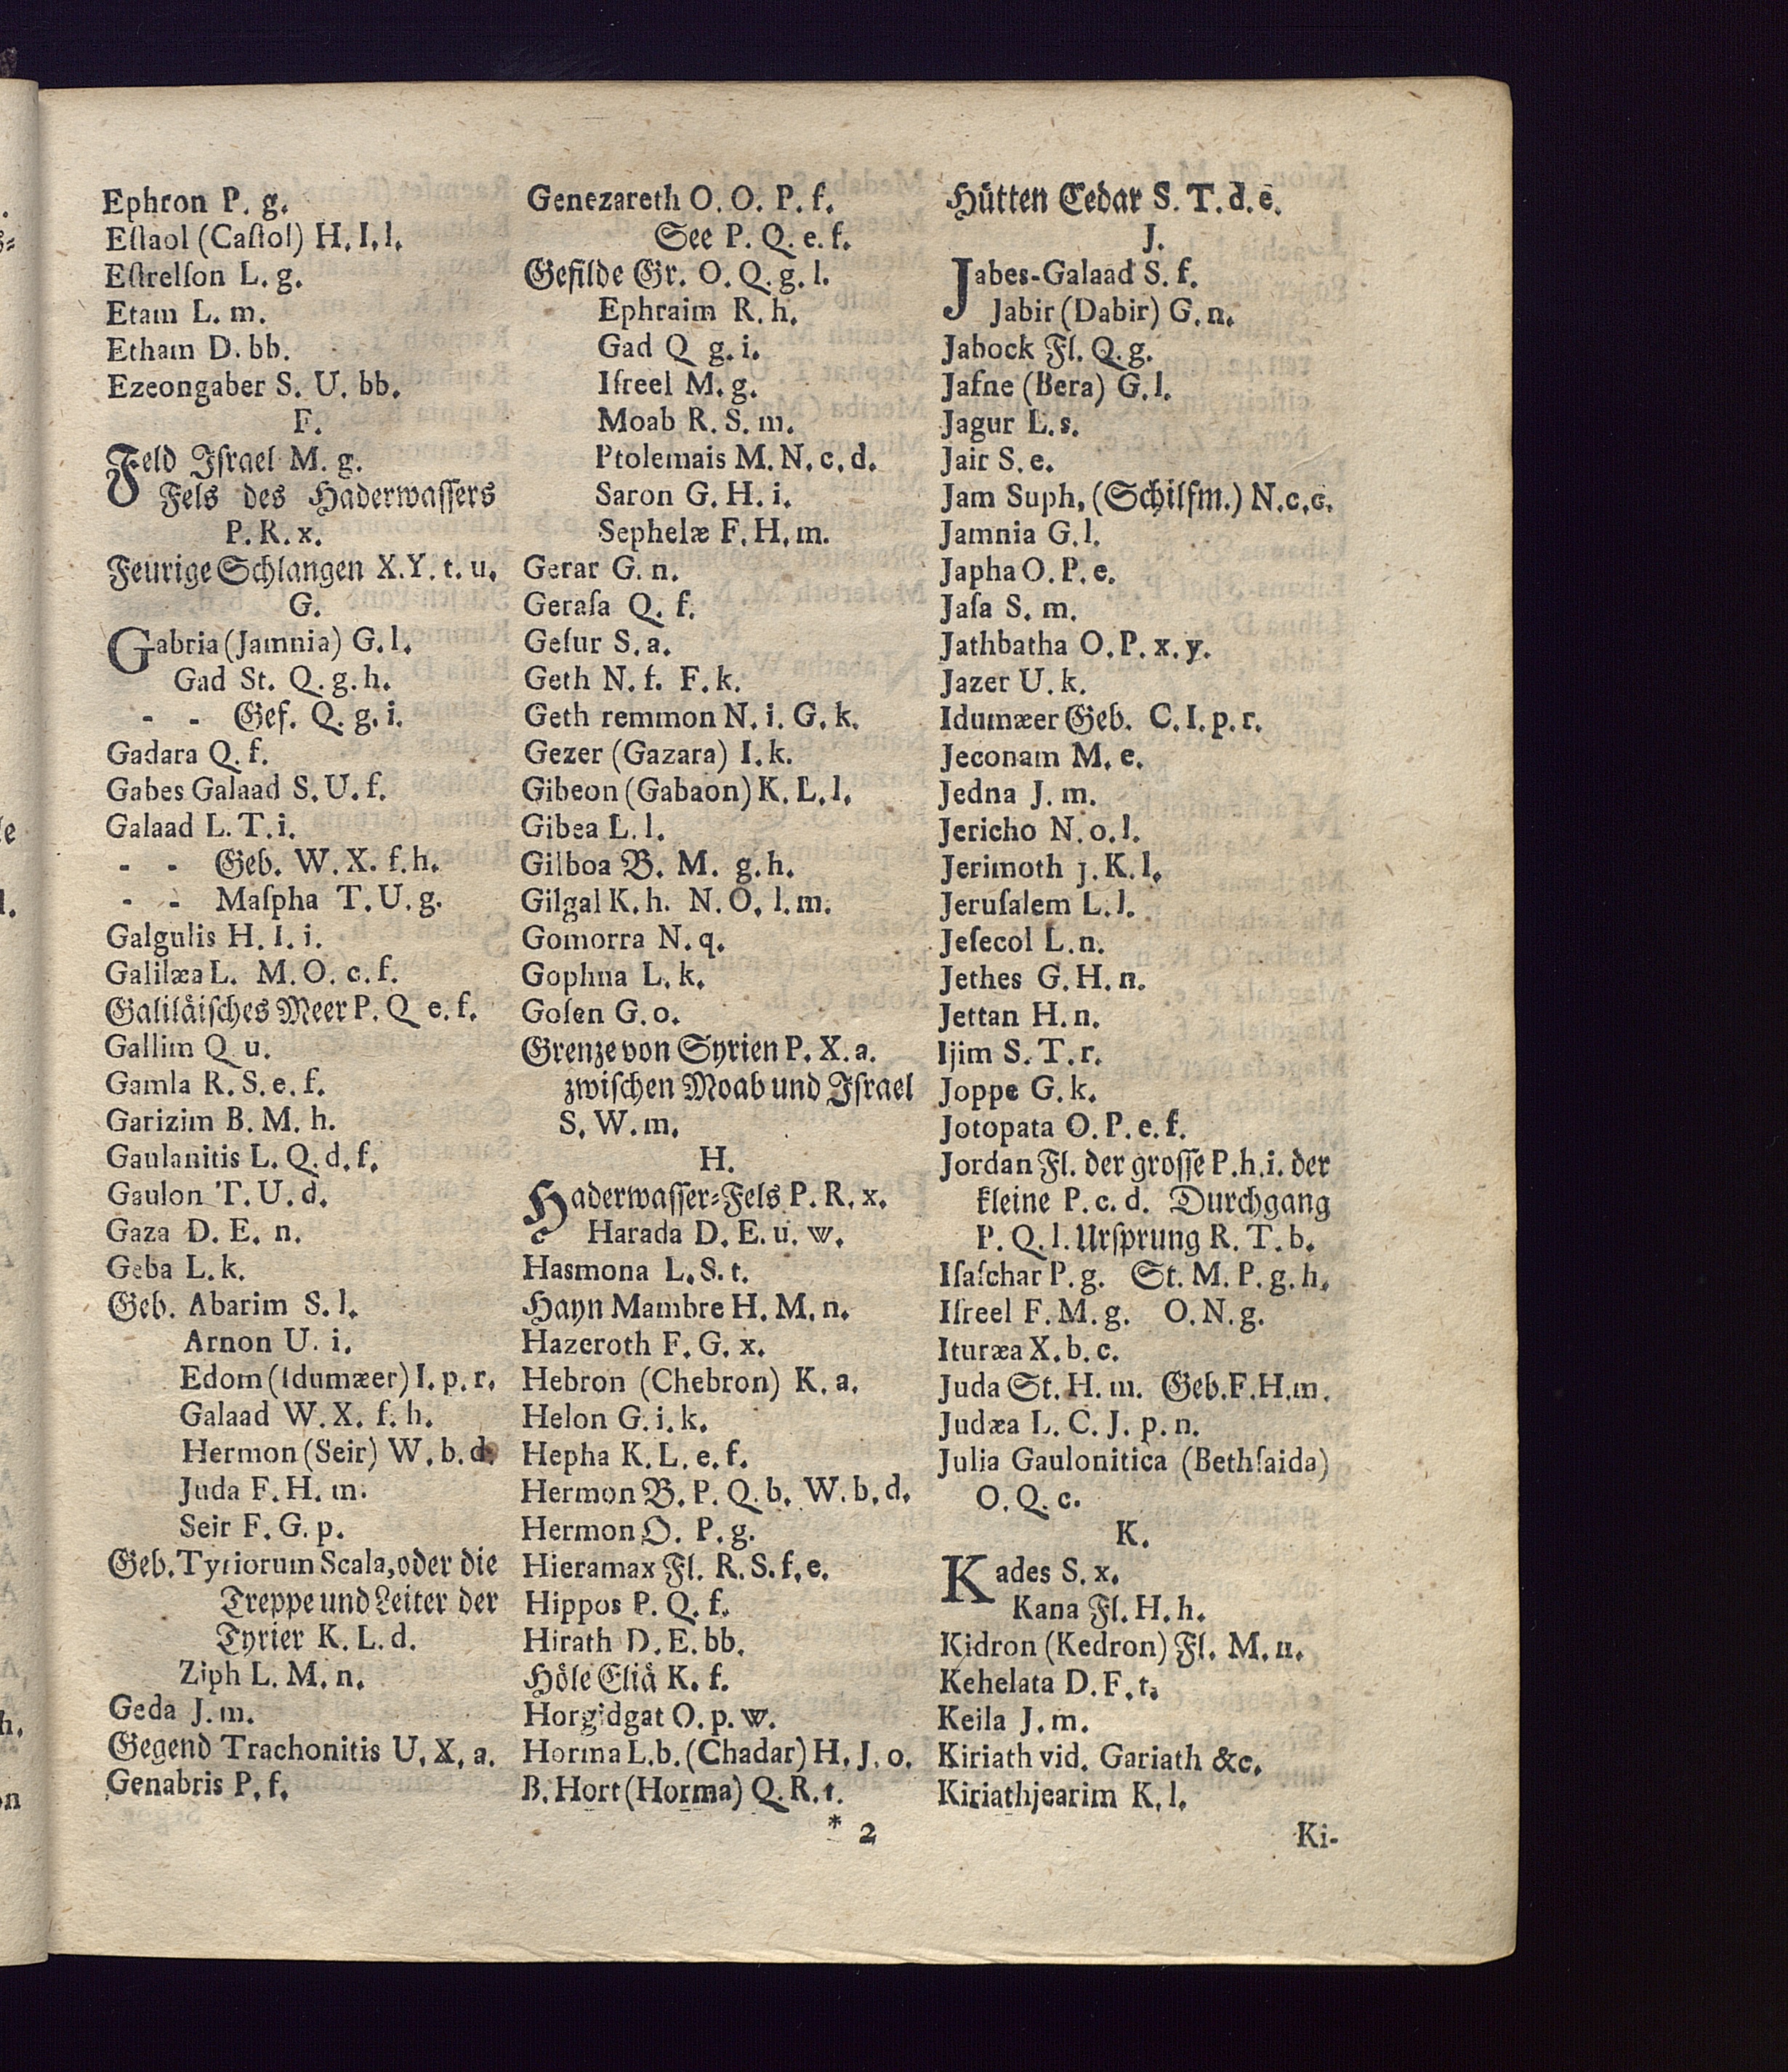 Ephron P. g.
Eſlaol (Caſtol) H. I. l.
Eſtrelſon L. g.
Etam L. m.
Etham D. bb.
Ezeongaber S. U. bb.
F.
Feld Iſrael M. g.
Fels des Haderwaſſers
P. R. x.
Feurige Schlangen X. Y. t. u.
G.
Gabria (Jamnia) G. l.
Gad St. Q. g. h.
- - Geſ. Q. g. i.
Gadara Q. f.
Gabes Galaad S. U. f.
Galaad L. T. i.
- - Geb. W. X. f. h.
- - Maſpha T. U. g.
Galgulis H. I. i.
Galilæa L. M. O. c. f.
Galiläiſches Meer P. Q e. f.
Gallim Q u.
Gamla R. S. e. f.
Garizim B. M. h.
Gaulanitis L. Q. d. f.
Gaulon T. U. d.
Gaza D. E. n.
Geba L. k.
Geb. Abarim S. l.
Arnon U. i.
Edom (Idumæer) I. p. r.
Galaad W. X. f. h.
Hermon (Seir) W. b. d.
Juda F. H. m.
Seir F. G. p.
Geb. Tyriorum Scala, oder die
Treppe und Leiter der
Tyrier K. L. d.
Ziph L. M. n.
Geda J. m.
Gegend Trachonitis U. X. a.
Genabris P. f.
Genezareth O. O. P. f.
See P. Q. e. f.
Gefilde Gr. O. Q. g. l.
Ephraim R. h.
Gad Q g. i.
Iſreel M. g.
Moab R. S. m.
Ptolemais M. N. c. d.
Saron G. H. i.
Sephelæ F. H. m.
Gerar G. n.
Geraſa Q. f.
Geſur S. a.
Geth N. f. F. k.
Geth remmon N. i. G. k.
Gezer (Gazara) I. k.
Gibeon (Gabaon) K. L. l.
Gibea L. l.
Gilboa B. M. g. h.
Gilgal K. h. N. O. l. m.
Gomorra N. q.
Gophna L. k.
Goſen G. o.
Grenze von Syrien P. X. a.
zwiſchen Moab und Iſrael
S. W. m.
H.
Haderwaſſer-Fels P. R. x.
Harada D. E. u. w.
Hasmona L. S. t.
Hayn Mambre H. M. n.
Hazeroth F. G. x.
Hebron (Chebron) K. a.
Helon G. i. k.
Hepha K. L. e. f.
Hermon B. P. Q. b. W. b. d.
Hermon O. P. g.
Hieramax Fl. R. S. f. e.
Hippos P. Q. f.
Hirath D. E. bb.
Höle Eliä K. f.
Horgidgat O. p. w.
Horma L. b. (Chadar) H. J. o.
B. Hort (Horma) Q. R. t.
* 2
Hütten Cedar S. T. d. e.
J.
Jabes-Galaad S. f.
Jabir (Dabir) G. n.
Jabock Fl. Q. g.
Jafne (Bera) G. l.
Jagur L. s.
Jair S. e.
Jam Suph, (Schilfm.) N. c. c.
Jamnia G. l.
Japha O. P. e.
Jaſa S. m.
Jathbatha O. P. x. y.
Jazer U. k.
Idumæer Geb. C. I. p. r.
Jeconam M. e.
Jedna J. m.
Jericho N. o. l.
Jerimoth j. K. l.
Jeruſalem L. l.
Jeſecol L. n.
Jethes G. H. n.
Jettan H. n.
Ijim S. T. r.
Joppe G. k.
Jotopata O. P. e. f.
Jordan Fl. der groſſe P. h. i. der
kleine P. c. d. Durchgang
P. Q. l. Urſprung R. T. b.
Iſaſchar P. g. St. M. P. g. h.
Iſreel F. M. g. O. N. g.
Ituræa X. b. c.
Juda St. H. m. Geb. F. H. m.
Judæa L. C. J. p. n.
Julia Gaulonitica (Bethſaida)
O. Q. c.
K.
Kades S. x.
Kana Fl. H. h.
Kidron (Kedron) Fl. M. n.
Kehelata D. F. t.
Keila J. m.
Kiriath vid. Gariath &c.
Kiriathjearim K. l.
Ki-